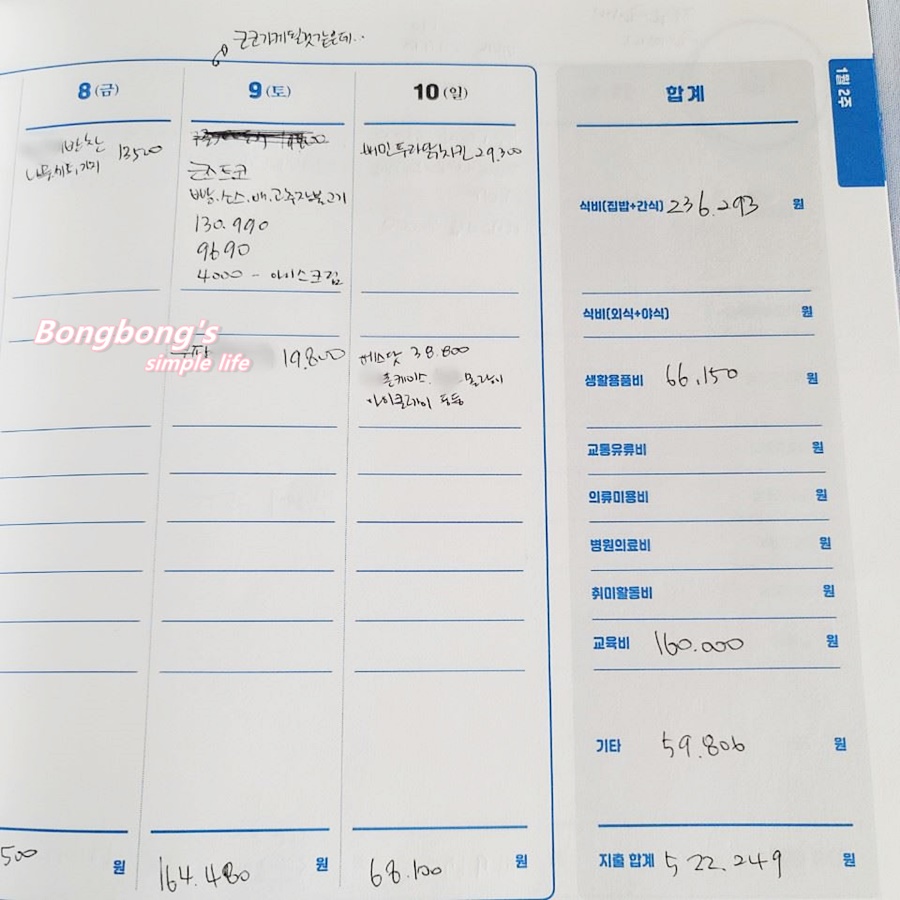 큰코가게될것같은데..
1월 2주
8(금)
반찬 13500
9(토)
코스트코
빵.소스.배.고추장불고기
130.990
9690
4000 - 아이스크림
쿠팡 19.800
10(일)
배민 투가닭치킨 29.300
베스닷 38.800
폰케이스.
아이클레이 등등
합계
식비(집밥+간식) 236.293 원
식비(외식+야식) 원
생활용품비 66.150 원
교통유류비 원
의류미용비 원
병원의료비 원
취미활동비 원
교육비 160.000 원
기타 59.806 원
500 원
164.480 원
68.100 원
지출 합계 522.249 원
Bongbong's
simple life